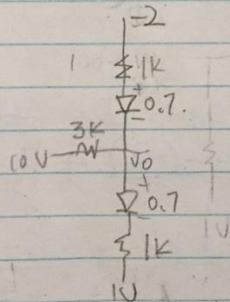 -2
1K
+
0.7.
-
3K
10V
Vo
+
0.7
-
1K
1V
1V